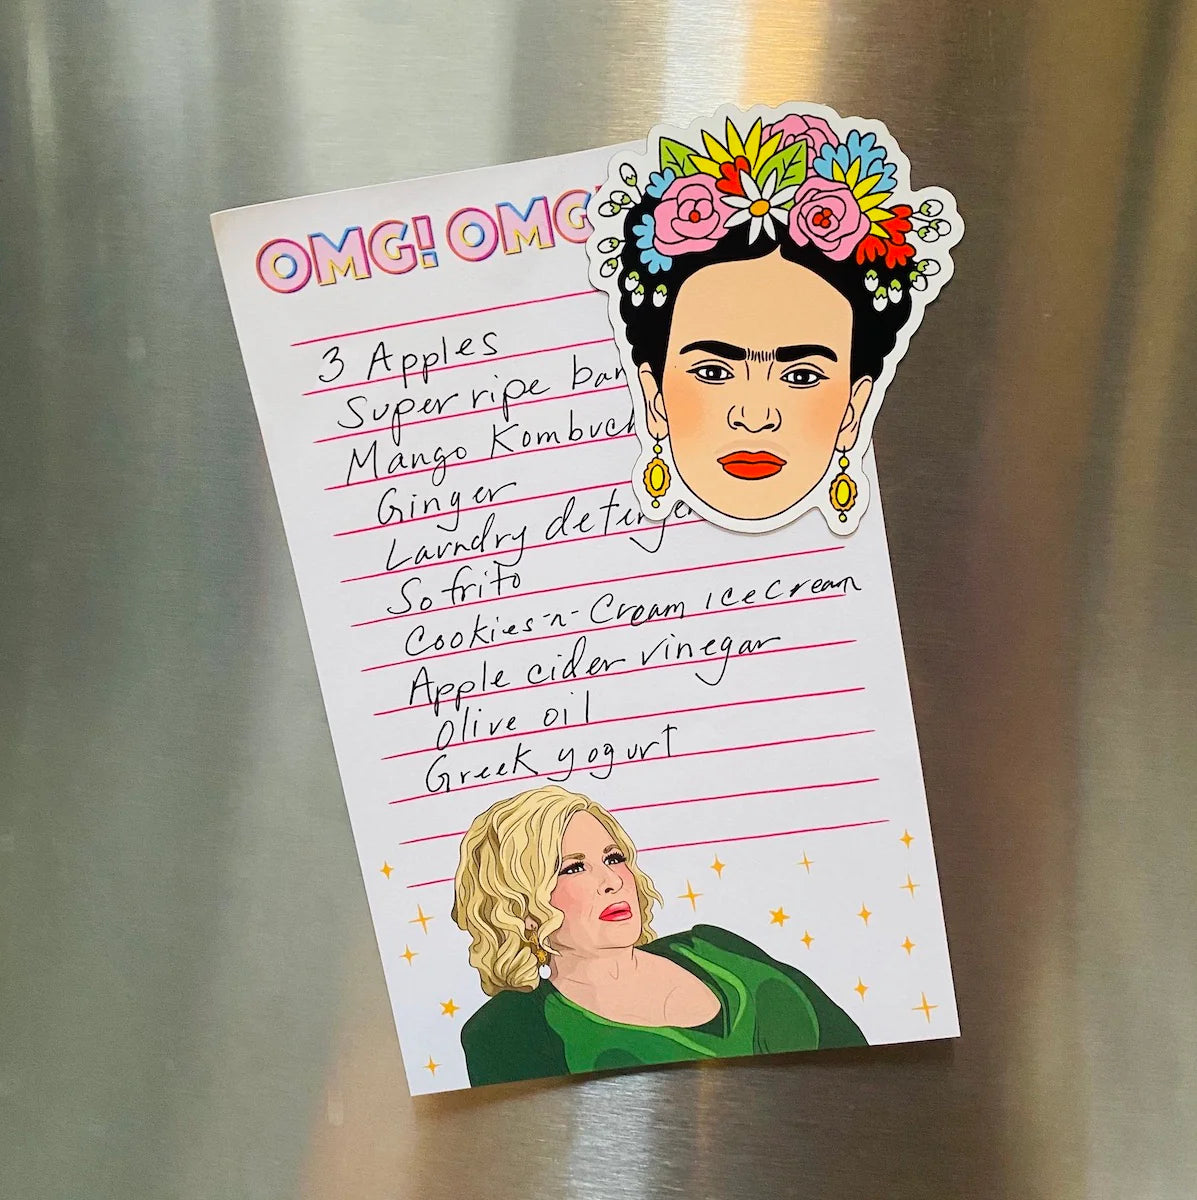 OMG! OMG
3 Apples
Super ripe ban
Mango Kombuch
Ginger
Laundry deterge
Sofrito
Cookies-n-Cream ice cream
Apple cider vinegar
Olive oil
Greek yogurt